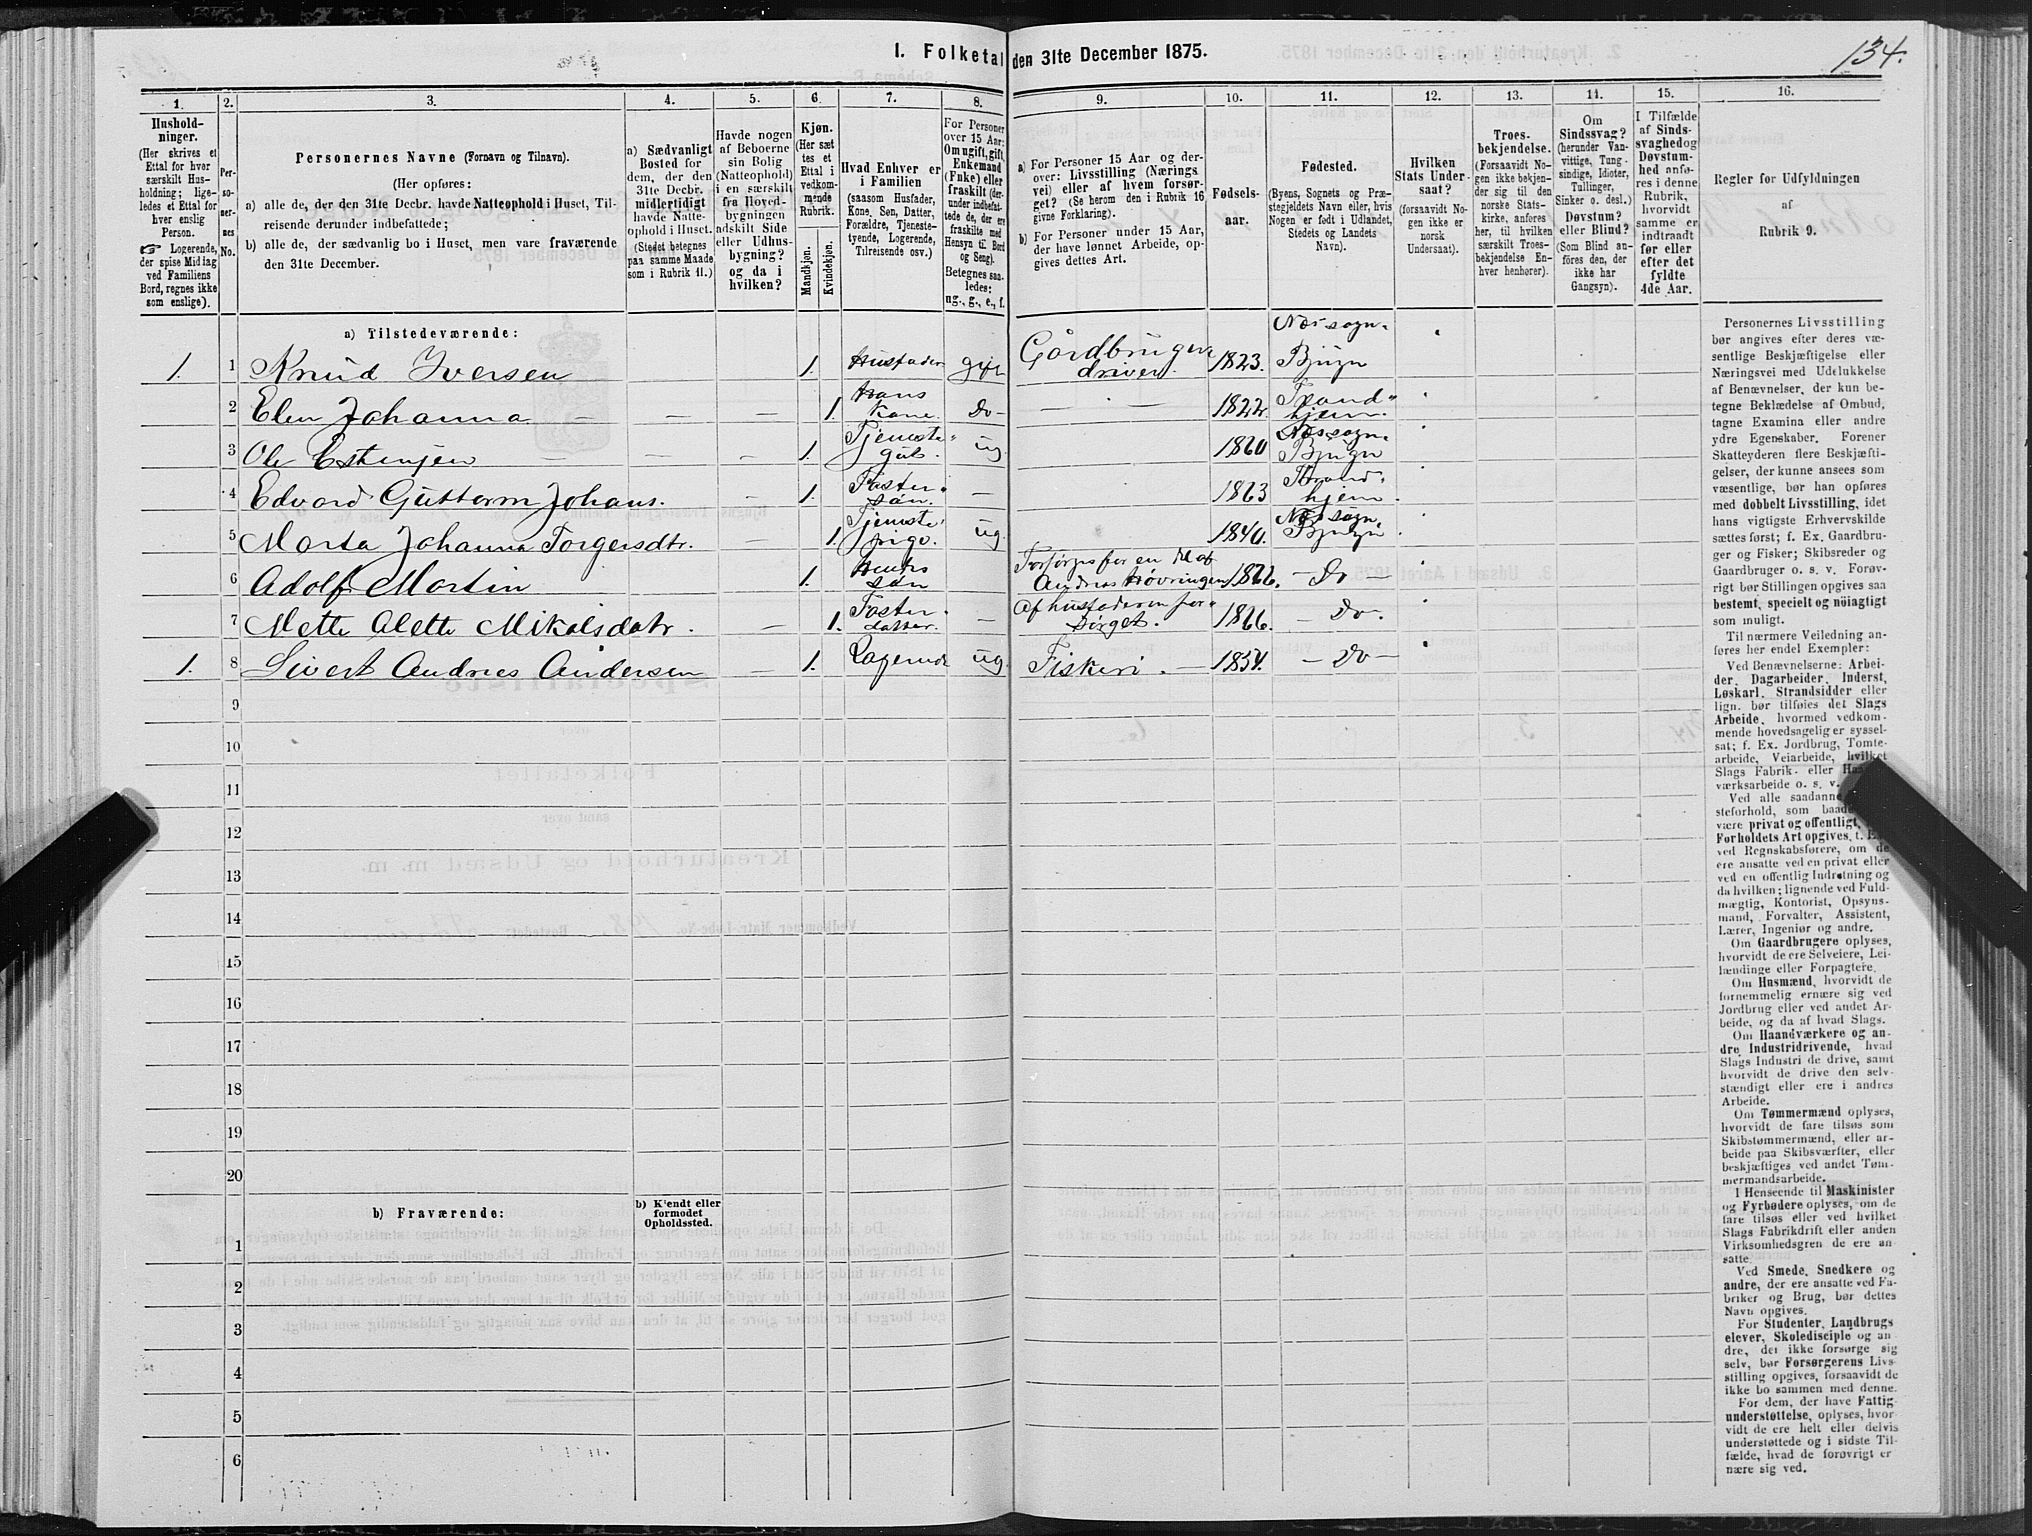 I. Folketal den 31te December 1875.
134.
1.
2.
3.
4.
5.
6.
7.
8.
9.
10.
11.
12.
13.
14.
15.
16.
Hushold-
ninger.
(Her skrives et
Ettal for hver
særskilt Hus-
holdning; lige-
ledes et Ettal for
hver enslig
Person.
☞ Logerende,
der spise Middag
ved Familiens
Bord, regnes ikke
som enslige).
Per-
so-
ner-
nes
No.
Personernes Navne (Fornavn og Tilnavn).
(Her opføres:
a) alle de, der den 31te Decbr. havde Natteophold i Huset, Til-
reisende derunder indbefattede;
b) alle de, der sædvanlig bo i Huset, men vare fraværende
den 31te December.
a) Sædvanligt
Bosted for
dem, der den
31te Decbr.
midlertidigt
havde Natte-
ophold i Huset.
(Stedet betegnes
paa samme Maade
som i Rubrik 11.)
Havde nogen
af Beboerne
sin Bolig
(Natteophold)
i en særskilt
fra Hoved-
bygningen
adskilt Side
eller Udhus-
bygning?
og da i
hvilken?
Kjøn.
(Her sæt
tes et
Ettal i
vedkom-
mende
Rubrik.
Mandkjøn.
Kvindekjøn.
Hvad Enhver er
i Familien
(saasom Husfader,
Kone, Søn, Datter,
Forældre, Tjeneste-
tyende, Logerende,
Tilreisende osv.)
For Personer
over 15 Aar:
Om ugift, gift,
Enkemand
(Enke) eller
fraskilt (der-
under indbefat-
tede de, der ere
fraskilte med
Hensyn til Bord
og Seng).
Betegnes saa-
ledes:
ug., g., e., f.
a) For Personer 15 Aar og der-
over: Livsstilling (Nærings
vei) eller af hvem forsør-
get? (Se herom den i Rubrik 16
givne Forklaring).
b) For Personer under 15 Aar,
der have lønnet Arbeide, op-
gives dettes Art.
Fødsels-
aar.
Fødested.
(Byens, Sognets og Præ-
stegjeldets Navn eller, hvis
Nogen er født i Udlandet,
Stedets og Landets
Navn).
Hvilken
Stats Under-
saat?
(forsaavidt No-
gen ikke er
norsk
Undersaat).
Troes-
bekjendelse.
(Forsaavidt No-
gen ikke bekjen-
der sig til den
norske Stats-
kirke, anføres
her, til hvilken
særskilt Troes-
bekjendelse En-
hver henhører).
Om
Sindssvag?
(herunder Van-
vittige, Tung-
sindige, Idioter,
Tullinger,
Sinker o. desl.)
Døvstum?
eller Blind?
(Som Blind an-
føres den, der
ikke har
Gangsyn).
I Tilfælde
af Sinds-
svaghed og
Døvstum-
hed anfø-
res i denne
Rubrik,
hvorvidt
samme er
indtraadt
før eller
efter det
fyldte
4de Aar.
Regler for Udfyldningen
af
Rubrik 9.
a) Tilstedeværende:
1. 1 Knud Iversen 1. Husfader gift Gårdbruger driver. 1823. Næs sogn. Bjugn
2 Elen Johanna — — — 1. Hans Kone. Do — — 1822. Trondhjem.
3 Ole — — 1. Tjenestegut. ug. 1860 Næs sogn. Bjugn
4 Edvard Guttorm Johans. — 1. Fostersøn. — 1863 Trondhjem.
5 Marta Johanna Torgersdtr. 1. Tjenestepige. ug. 1840. Næs sogn. Bjugn.
6 Adolf Martin 1. Hendes søn Andreas Høvringen 1866. — Do —
7 Mette Alette Mikalsdatr. — 1. Fosterdatter. — Af husfaderen forsørget. 1866. — Do.
1. 8 Sivert Andreas Andersen — 1. Logerende ug. Fiskeri. — 1854. — Do —
9
10
11
12
13
14
15
16
17
18
19
20
b) Fraværende:
b) Kjendt eller
formodet
Opholdssted.
1
2
3
4
5
6
Personernes Livsstilling
bør angives efter deres væ-
sentlige Beskjæftigelse eller
Næringsvei med Udelukkelse
af Benævnelser, der kun be-
tegne Beklædelse af Ombud,
tagne Examina eller andre
ydre Egenskaber. Forener
Skatteyderen flere Beskjæfti-
gelser, der kunne ansees som
væsentlige, bør han opføres
med dobbelt Livsstilling, idet
hans vigtigste Erhvervskilde
sættes først; f. Ex. Gaardbru-
ger og Fisker; Skibsreder og
Gaardbruger o. s. v. Forøv-
rigt bør Stillingen opgives saa
bestemt, specielt og nöiagtigt
som muligt.
Til nærmere Veiledning an-
føres her endel Exempler:
Ved Benævnelserne: Arbei-
der, Dagarbeider, Inderst,
Løskarl, Strandsidder eller
lign. bør tilføies det Slags
Arbeide, hvormed vedkom-
mende hovedsagelig er syssel-
sat; f. Ex. Jordbrug, Tomte-
arbeide, Veiarbeide, hvilket
Slags Fabrik- eller
værksarbeide o. s. v.
Ved alle saadanne
steforhold, som baade
være privat og offentligt,
Forholdets Art opgives, t. Ex.
ved Regnskabsførere, om de
ere ansatte ved en privat eller
ved en offentlig Indretning og
da hvilken; lignende ved Fuld-
mægtig, Kontorist, Opsyns-
mand, Forvalter, Assistent,
Lærer, Ingeniør og andre.
Om Gaardbrugere oplyses,
hvorvidt de ere Selveiere, Lei-
lændinge eller Forpagtere.
Om Husmænd, hvorvidt de
fornemmelig ernære sig ved
Jordbrug eller ved andet Ar-
beide, og da af hvad Slags.
Om Haandværkere og an-
dre Industridrivende, hvad
Slags Industri de drive, samt
hvorvidt de drive den selv-
stændigt eller ere i andres
Arbeide.
Om Tømmermænd oplyses,
hvorvidt de fare tilsøs som
Skibstømmermænd, eller ar-
beide paa Skibsværfter, eller
beskjæftiges ved andet Tøm-
mermandsarbeide.
I Henseende til Maskinister
og Fyrbødere oplyses, om de
fare tilsøs eller ved hvilket
Slags Fabrikdrift eller anden
Virksomhedsgren de ere an-
satte.
Ved Smede, Snedkere og
andre, der ere ansatte ved Fa-
briker og Brug, bør dettes
Navn opgives.
For Studenter, Landbrugs
elever, Skoledisciple og an-
dre, der ikke forsørge sig
selv, bør Forsørgerens Livs-
stilling opgives, forsaavidt de
ikke bo sammen med denne.
For dem, der have Fattig-
understøttelse, oplyses, hvor-
vidt de ere helt eller delvis
understøttede og i sidste Til-
fælde, hvad de forøvrigt er-
nære sig ved.